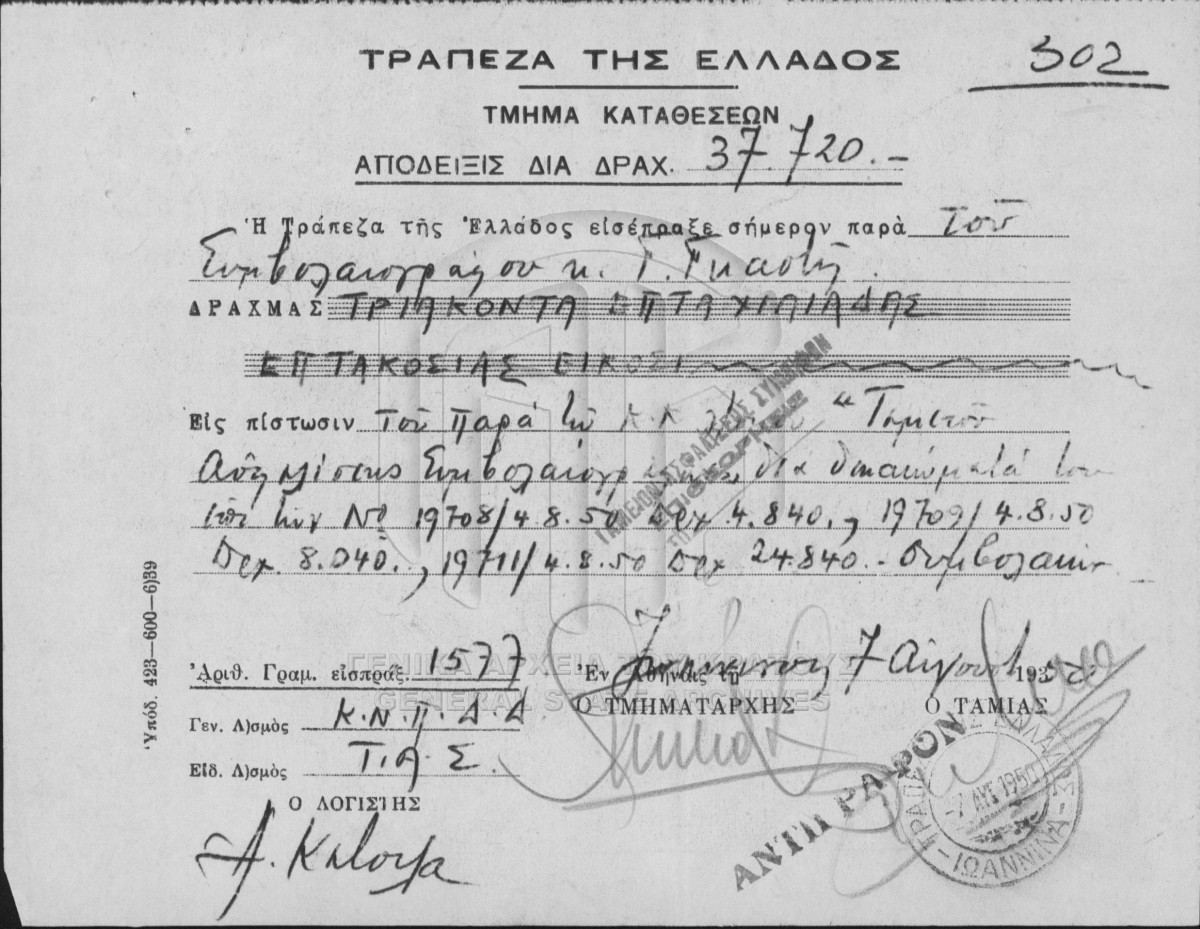 302
ΤΡΑΠΕΖΑ ΤΗΣ ΕΛΛΑΔΟΣ
ΤΜΗΜΑ ΚΑΤΑΘΕΣΕΩΝ
ΑΠΟΔΕΙΞΙΣ ΔΙΑ ΔΡΑΧ. 37.720.-
Ἡ Τράπεζα τῆς Ἑλλάδος εἰσέπραξε σήμερον παρὰ τοῦ
Συμβολαιογράφου κ. Γ. Γκαστῆ.
ΔΡΑΧΜΑΣ ΤΡΙΑΚΟΝΤΑ ΕΠΤΑ ΧΙΛΙΑΔΑΣ
ΕΠΤΑΚΟΣΙΑΣ ΕΙΚΟΣΙ
Εἰς πίστωσιν τοῦ παρὰ "Ταμείου
Ἀσφαλίσεως διὰ δικαιώματά του
ἐπὶ τῶν Νο 19708/4.8.50 Δρχ 4.840., 19709/4.8.50
Δρχ. 8.040., 19711/4.8.50 Δρχ 24.840.- συμβολαίων
ΤΑΜΕΙΟΝ ΑΣΦΑΛΙΣΕΩΣ ΣΥΜΒ/ΦΩΝ
ΓΕΝΙΚΑ ΑΡΧΕΙΑ ΤΟΥ ΚΡΑΤΟΥΣ
GENERAL STATE ARCHIVES
Ἀριθ. Γραμ. εἰσπράξ. 1577
Ἐν Ἀθήναις τῇ 7 Αὐγούστ 1950
Γεν. Λ)σμὸς Κ.Ν.Π.Δ.Δ
Ο ΤΜΗΜΑΤΑΡΧΗΣ
Ο ΤΑΜΙΑΣ
Εἰδ. Λ)σμὸς Τ.Α.Σ.
Ο ΛΟΓΙΣΤΗΣ
ΑΝΤΙΓΡΑΦΟΝ
-7 ΑΥΓ 1950
-ΙΩΑΝΝΙΝΑ-
Ὑπόδ. 423—600—6)39